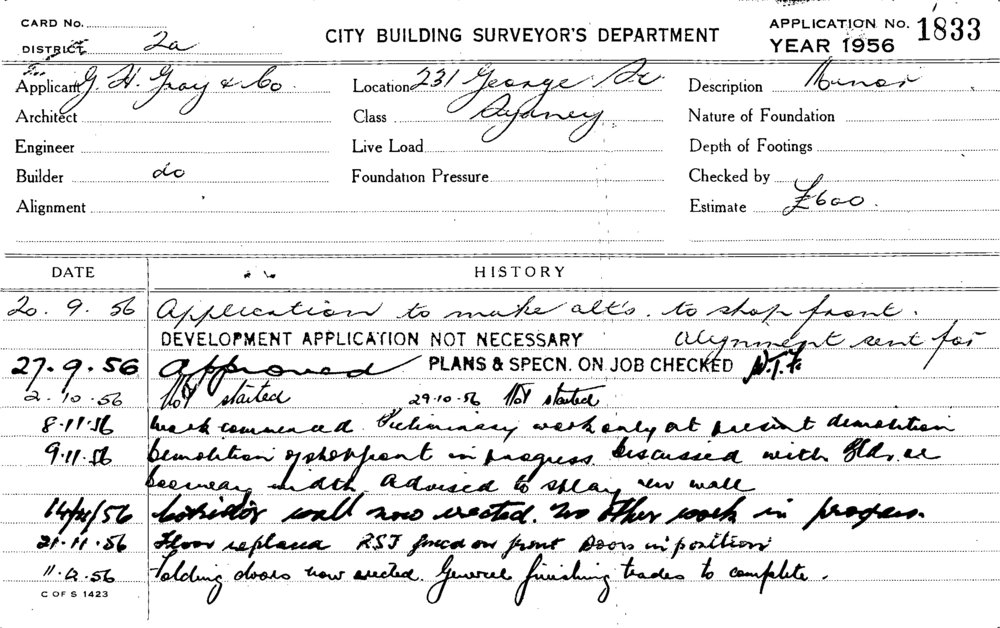 CARD No.
DISTRICT 2a
CITY BUILDING SURVEYOR'S DEPARTMENT
APPLICATION No. 1833
YEAR 1956
For
Applicant G. H. Gray & Co
Location 231 George St
Description Minor
Architect
Class Sydney
Nature of Foundation
Engineer
Live Load
Depth of Footings
Builder do
Foundation Pressure
Checked by
Alignment
Estimate £600.
DATE HISTORY
20. 9. 56 Application to make alt's. to shop front.
DEVELOPMENT APPLICATION NOT NECESSARY Alignment sent for
27. 9. 56 Approved PLANS & SPECN. ON JOB CHECKED
2. 10. 56 Not started 29.10.56 Not started
8.11.56 Work commenced. Preliminary work only at present demolition
9.11.56 Demolition of shopfront in progress. Discussed with Bldr. re
doorway width. Advised to splay new wall
14/11/56 Corridor wall now erected. No other work in progress.
21.11.56 Floor replaced RSJ fixed over front Doors in position
11.12.56 Folding doors now erected. General finishing trades to complete.
C OF S 1423